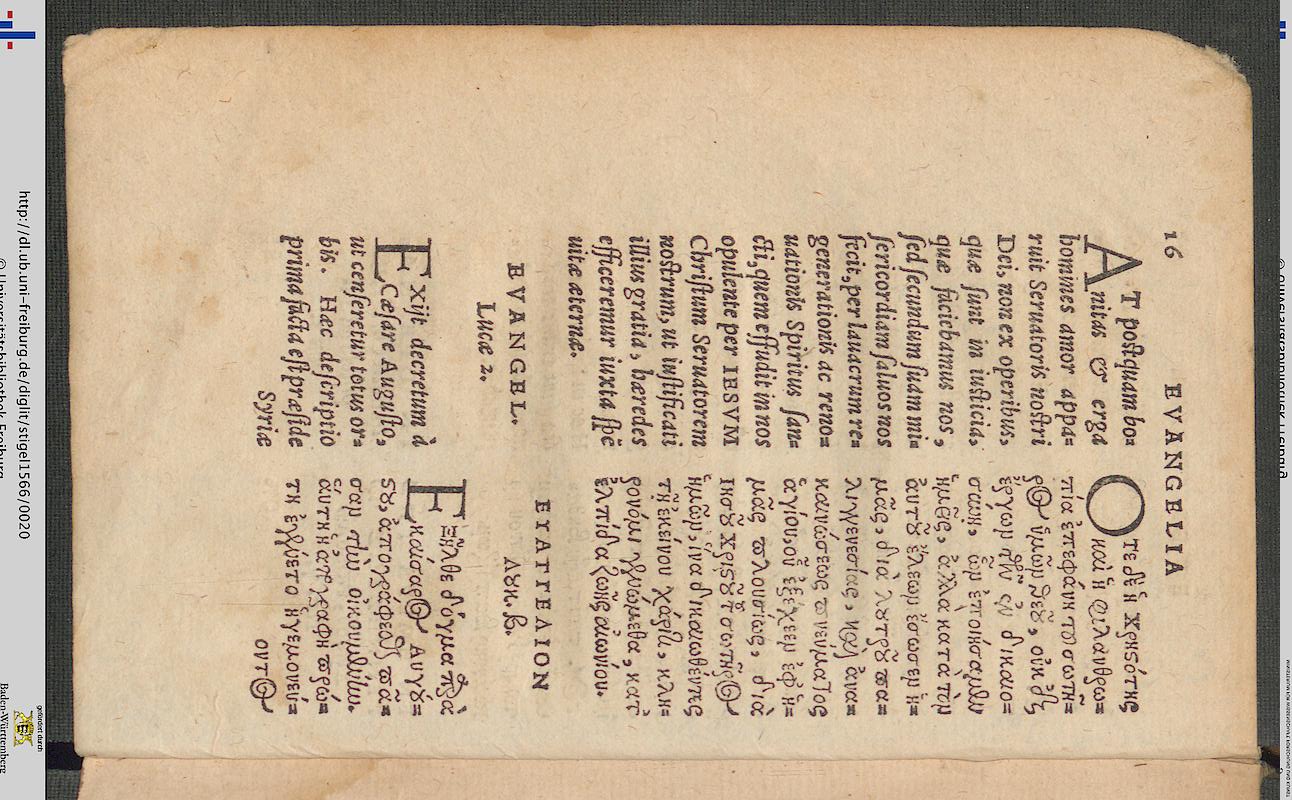 16 EVANGELIA
AT postquam bo=
nitas & erga
homines amor appa=
ruit Seruatoris nostri
Dei, non ex operibus,
quæ sunt in iusticia,
quæ faciebamus nos,
sed secundum suam mi=
sericordiam saluos nos
fecit, per lauacrum re=
generationis ac reno=
uationis Spiritus san=
cti, quem effudit in nos
opulente per IESVM
Christum Seruatorem
nostrum, ut iustificati
illius gratia, hæredes
efficeremur iuxta spē
uitæ æternæ.
EVANGEL.
Lucæ 2.
EXijt decretum à
Cæsare Augusto,
ut censeretur totus or=
bis. Hæc descriptio
prima facta est præside
Syriæ
Οτε δὲ ἡ χρηστότης
καὶ ἡ φιλανθρω=
πία ἐπεφάνη τοῦ σωτῆ=
ρος ἡμῶν θεοῦ, οὐκ ἐξ
ἔργων τῶν ἐν δικαιο=
σύνῃ, ὧν ἐποιήσαμεν
ἡμεῖς, ἀλλὰ κατὰ τὸν
αὐτοῦ ἔλεον ἔσωσεν ἡ=
μᾶς, διὰ λουτροῦ πα=
λιγγενεσίας, καὶ ἀνα=
καινώσεως πνεύματος
ἁγίου, οὗ ἐξέχεεν ἐφ' ἡ=
μᾶς πλουσίως, διὰ
Ιησοῦ χριστοῦ τοῦ σωτῆρος
ἡμῶν, ἵνα δικαιωθέντες
τῇ ἐκείνου χάριτι, κλη=
ρονόμοι γενώμεθα, κατ'
ἐλπίδα ζωῆς αἰωνίου.
ΕΥΑΓΓΕΛΙΟΝ
Λουκ. β.
ΕΞῆλθε δόγμα παρὰ
καίσαρος Αὐγού=
στου, ἀπογράφεσθαι πᾶ=
σαν τὴν οἰκουμένην.
αὕτη ἡ ἀπογραφὴ πρώ=
τη ἐγένετο ἡγεμονεύ=
οντος
http://dl.ub.uni-freiburg.de/diglit/stigel1566/0020
© Universitätsbibliothek Freiburg
gefördert durch
Baden-Württemberg